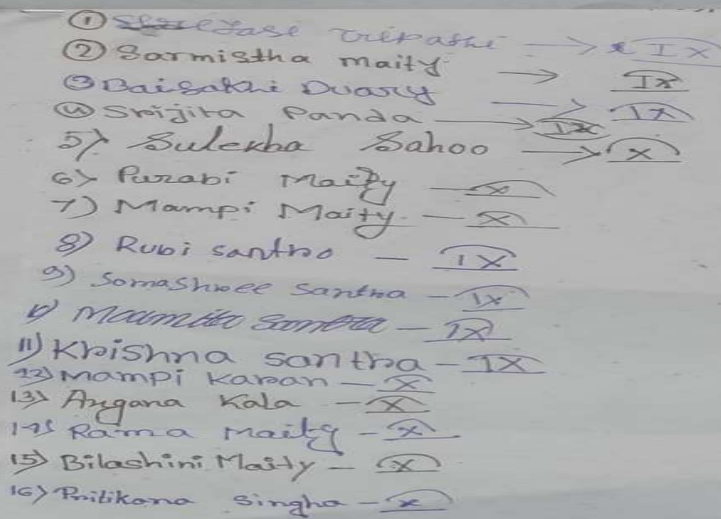 ① Tripathi → IX
② Sarmistha Maity → IX
③ Baisakhi Duary → IX
④ Srijita Panda → IX
5) Sulekha Sahoo → X
6) Purabi Maity – X
7) Mampi Maity – X
8) Rubi santra – IX
9) Somashree Santra – IX
Moumita Santra – IX
11) Krishna santra – IX
12) Mampi Karan – X
13) Angana Kala – X
14) Rama Maity – X
15) Bilashini Maity – X
16) Pritikana Singha – X